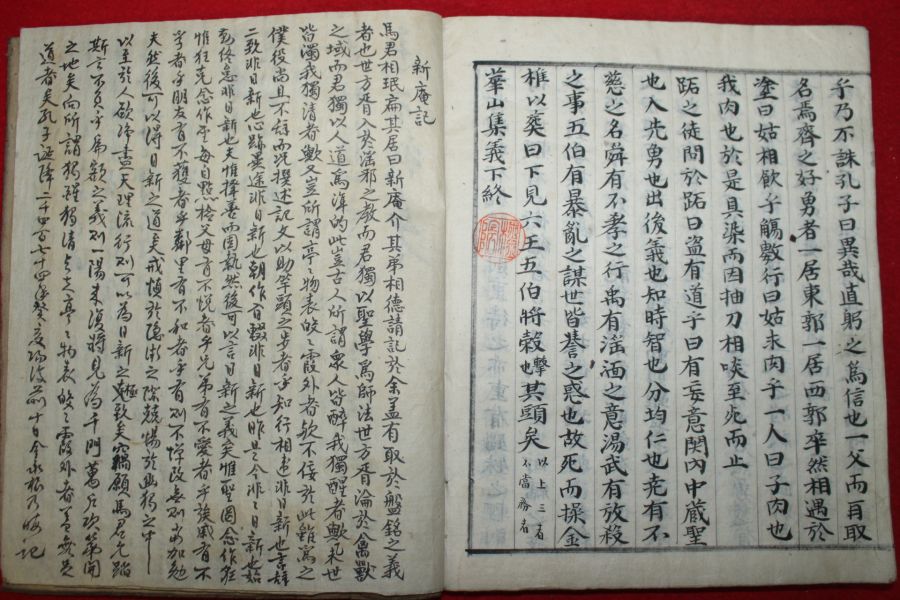 乎乃不誅孔子曰異哉直躬之為信也一父而再取
名焉齊之好勇者一居東郭一居西郭卒然相遇於
塗曰姑相飲乎觴數行曰姑求肉乎一人曰子肉也
我肉也於是具染而因抽刀相啖至死而止
跖之徒問於跖曰盜有道乎曰有妄意関內中藏聖
也入先勇也出後義也知時智也分均仁也堯有不
慈之名舜有不孝之行禹有滛湎之意湯武有放殺
之事五伯有暴亂之謀世皆譽之惑也故死而操金
椎以葬曰下見六王五伯將㲄其頭矣 以上三者不當務者
華山集義下終
新庵記
馬君相珉扁其居曰新庵介其弟相德請記於余盖有取於盤銘之義
者也世方胥入於滛邪之教而君獨以聖學為師法世方胥淪於禽獸
之域而君獨以人道為準的此豈古人所謂衆人皆醉我獨醒者歟
皆濁我獨清者歟又豈所謂亭亭物表皎皎霞外者歟不侫於此
僕役尚且不辭而況撰述記文以助竿頭之步者乎知行相違非日新也言辭
二致非日新也心跡異途非日新也朝作暮輟非日新也昨是今非非日新也始
勤終怠非日新也夫惟擇善而固執然後可以言日新之義矣惟聖罔念作狂
惟狂克念作聖每日點檢父母有不悅者乎兄弟有不愛者乎
乎者乎朋友有不獲者乎鄰里有不和者乎有則不憚改無則加勉
夫然後可以得日新之道矣戒慎於隱微之際兢惕於幽獨之中
以至於人欲淨盡天理流行則可以為日新之極歟矣竊願馬君先蹈
斯言不負乎扁額之義則一陽来復將見為千門萬戶次第開
之地矣向所謂獨醒獨清与夫亭亭物表皎皎霞外者
道者矣孔子誕降二千四百七十四年癸亥陽復前十日